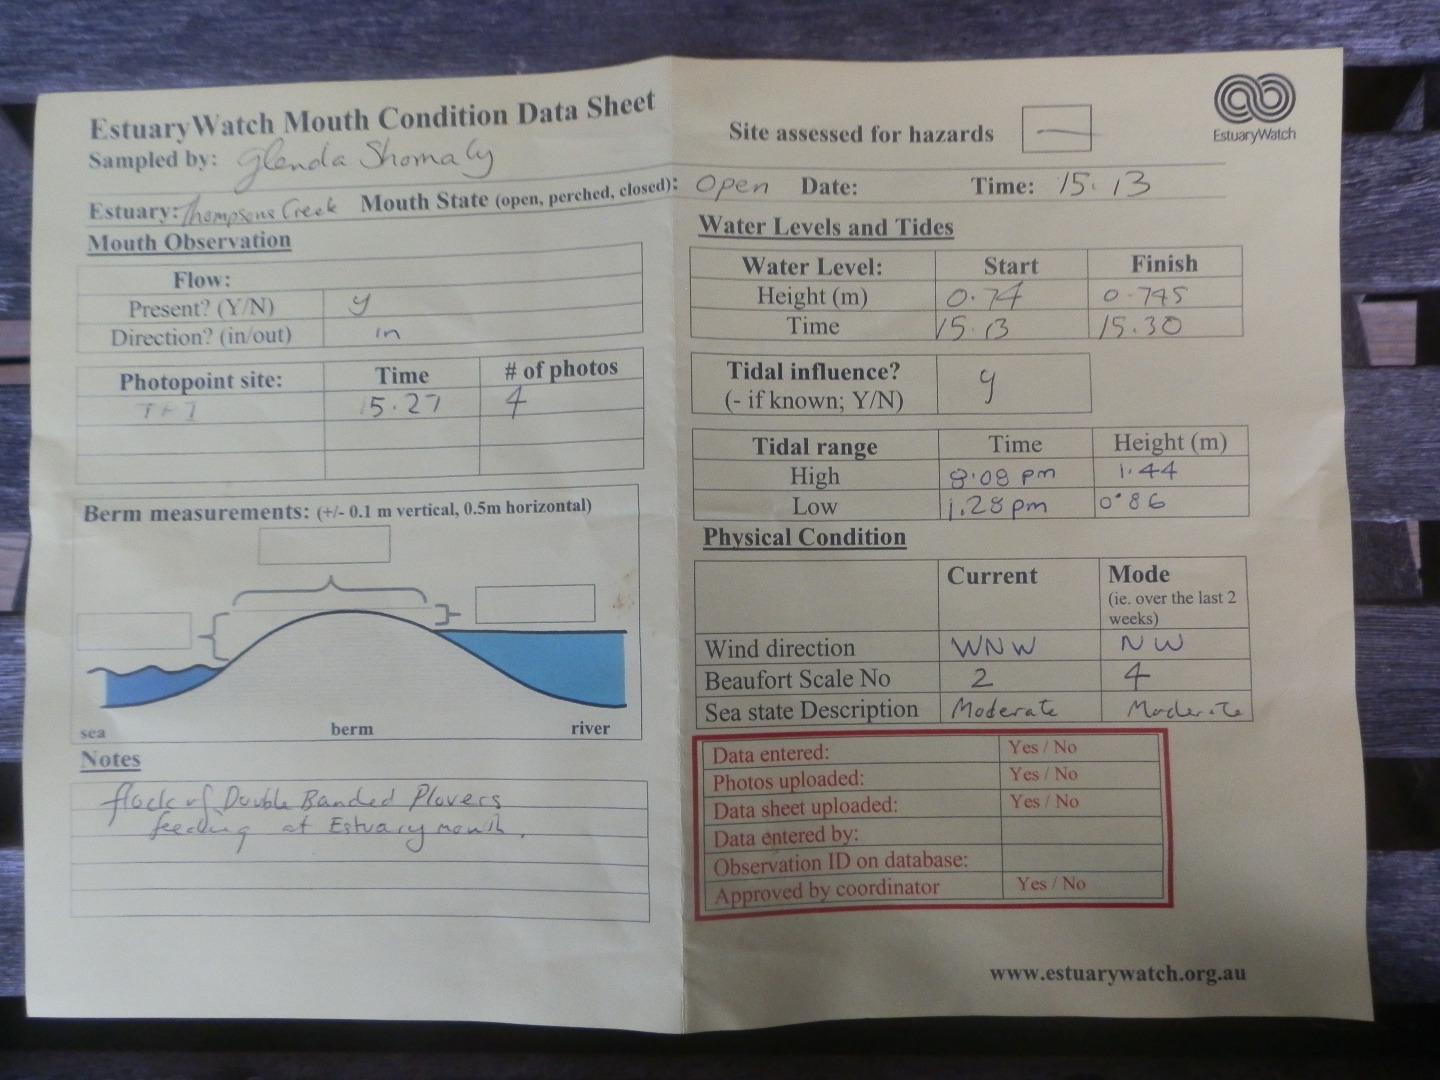 EstuaryWatch Mouth Condition Data Sheet
Sampled by: Glenda Shomaly
Site assessed for hazards —
EstuaryWatch
Estuary: Thompsons Creek Mouth State (open, perched, closed): Open Date: Time: 15.13
Mouth Observation
Flow:
Present? (Y/N) y
Direction? (in/out) in
Photopoint site: Time # of photos
15.27 4
Berm measurements: (+/- 0.1 m vertical, 0.5m horizontal)
sea berm river
Notes
flock of Double Banded Plovers
feeding at Estuary mouth.
Water Levels and Tides
Water Level: Start Finish
Height (m) 0.74 0.745
Time 15.13 15.30
Tidal influence? y
(- if known; Y/N)
Tidal range Time Height (m)
High 8.08 pm 1.44
Low 1.28 pm 0.86
Physical Condition
Current Mode
(ie. over the last 2
weeks)
Wind direction WNW NW
Beaufort Scale No 2 4
Sea state Description Moderate Moderate
Data entered: Yes / No
Photos uploaded: Yes / No
Data sheet uploaded: Yes / No
Data entered by:
Observation ID on database:
Approved by coordinator Yes / No
www.estuarywatch.org.au